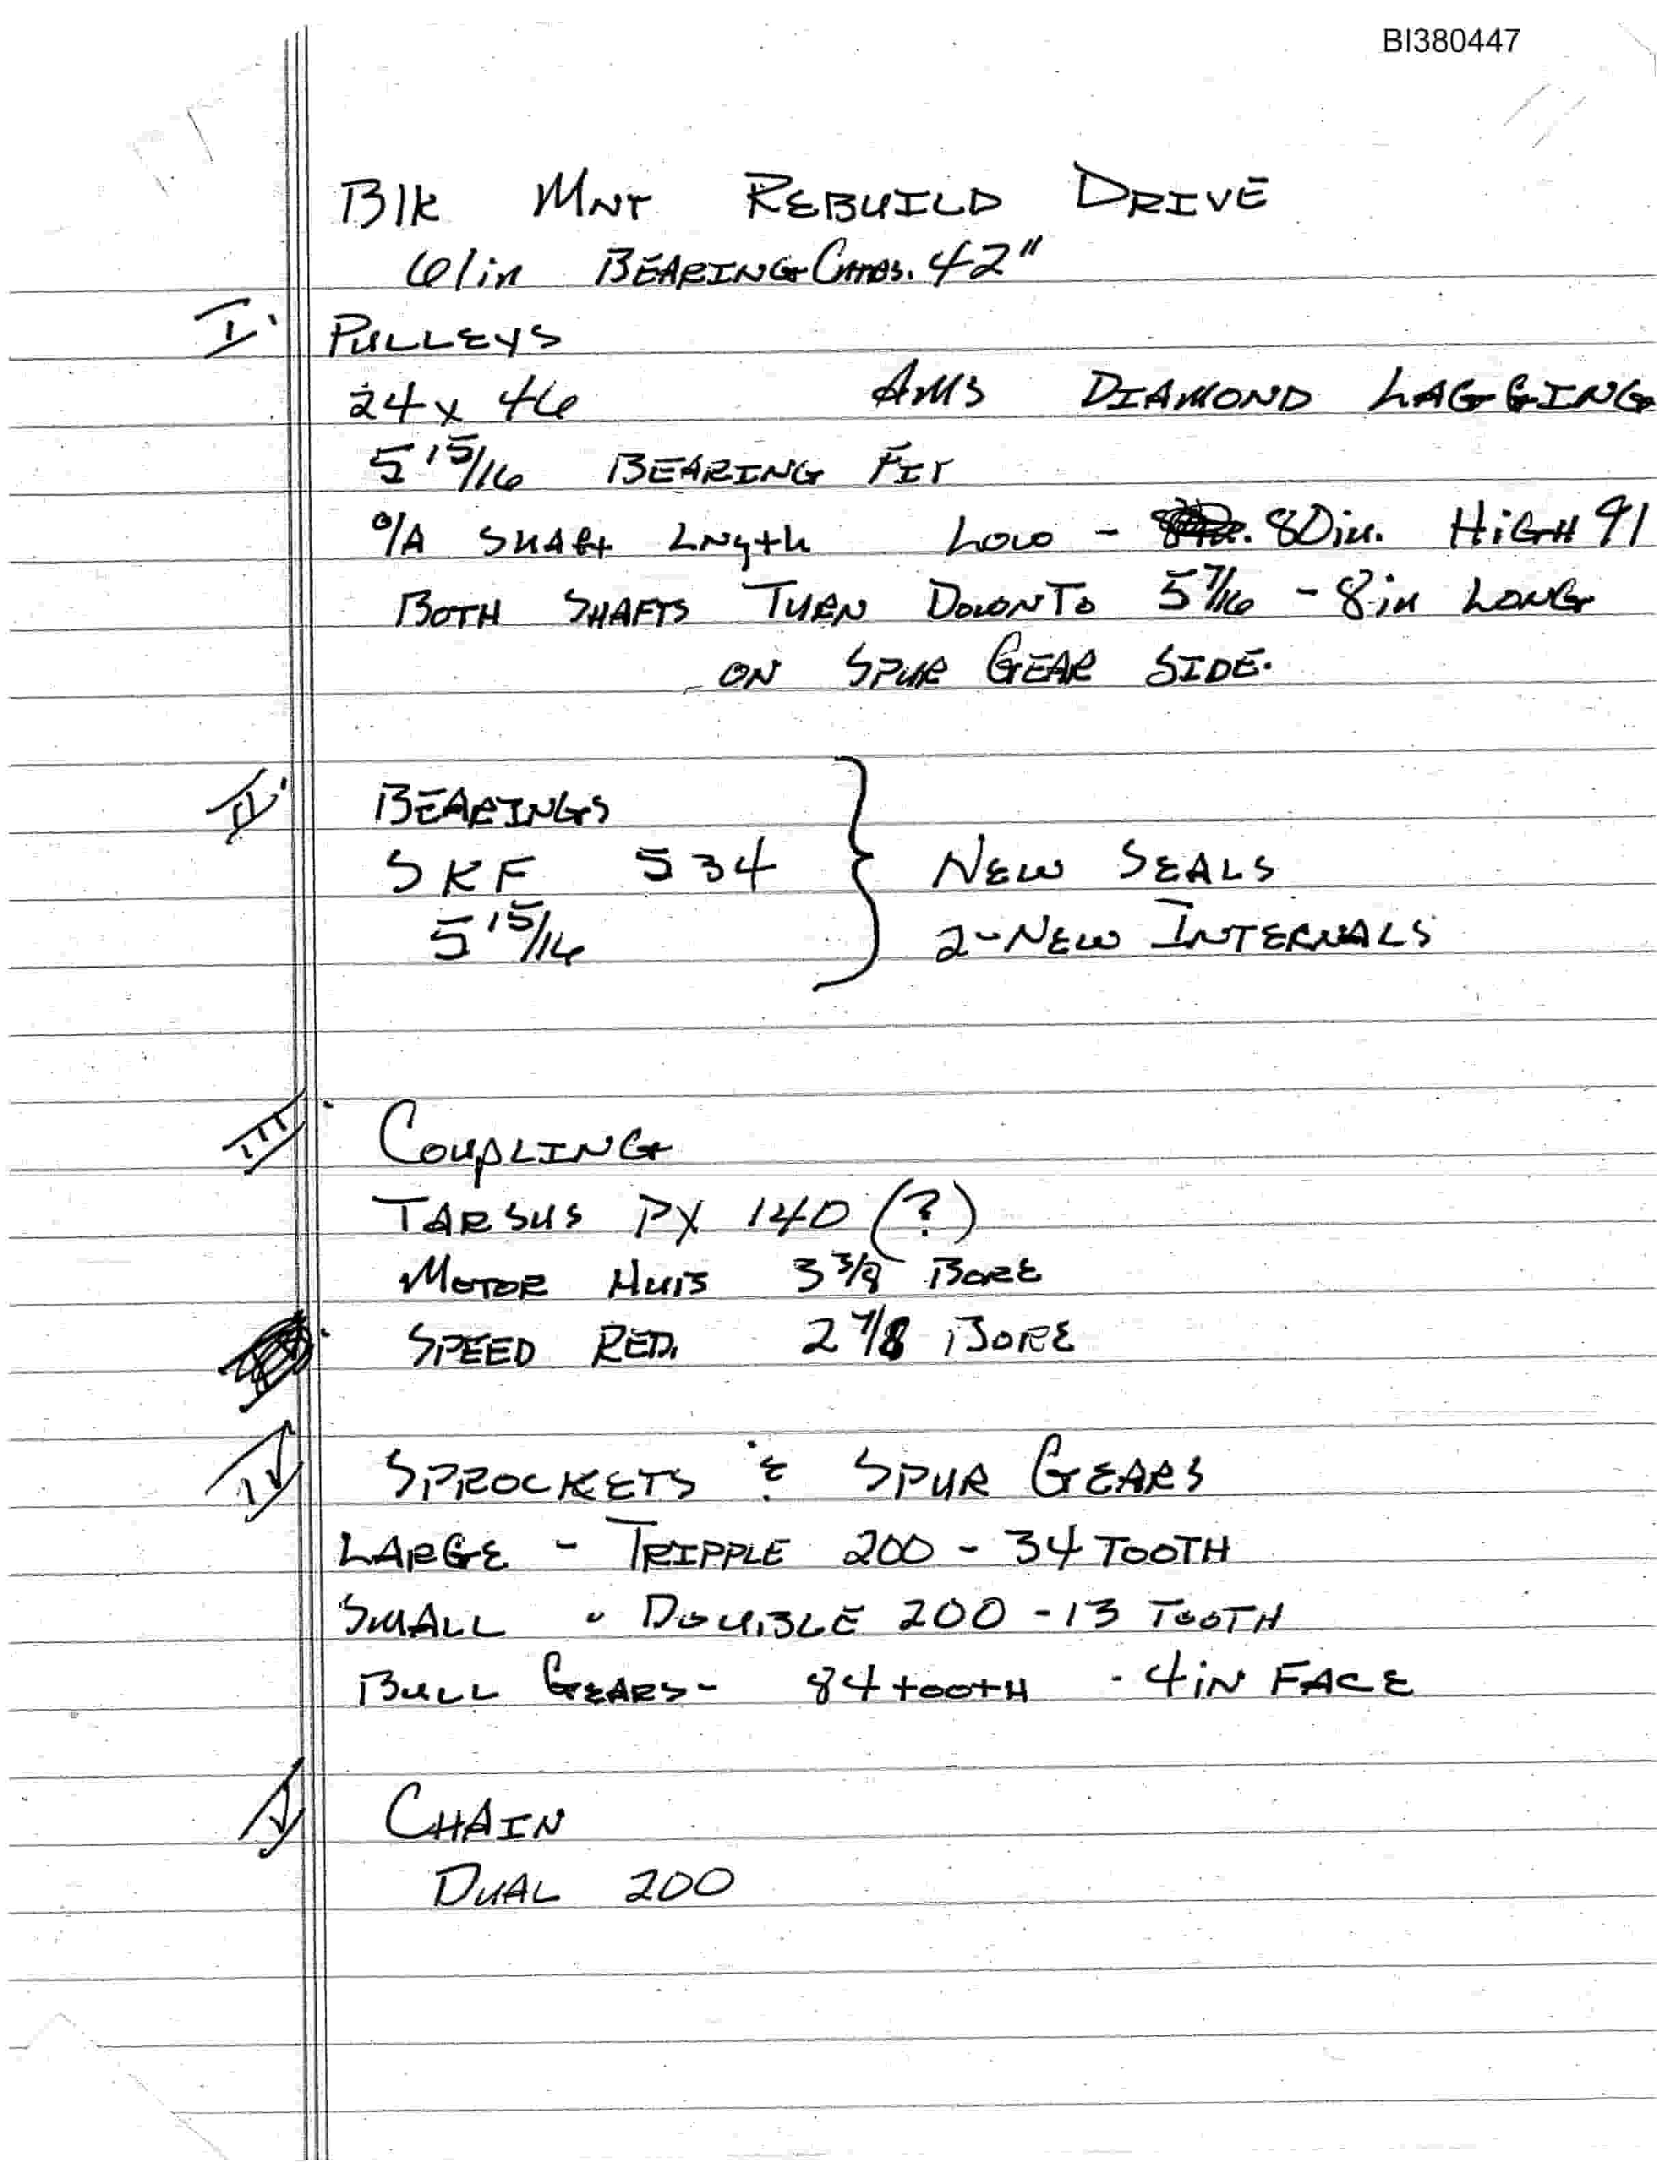 BI380447
Blk Mnt Rebuild Drive
61in Bearing 42"
I. Pulleys
24 x 46 AMS Diamond Lagging
5 15/16 Bearing Fit
O/A Shaft Lngth Low - 80in. High 91
Both Shafts Turn Down To 5 7/16 - 8in Long
on Spur Gear Side.
II. Bearings
SKF 534 New Seals
5 15/16 2-New Internals
III. Coupling
Tarsus PX 140 (?)
Motor Hub 3 3/8 Bore
Speed Red. 2 7/8 Bore
IV Sprockets & Spur Gears
Large - Tripple 200 - 34 Tooth
Small - Double 200 - 13 Tooth
Bull Gears - 84 tooth - 4in Face
V Chain
Dual 200